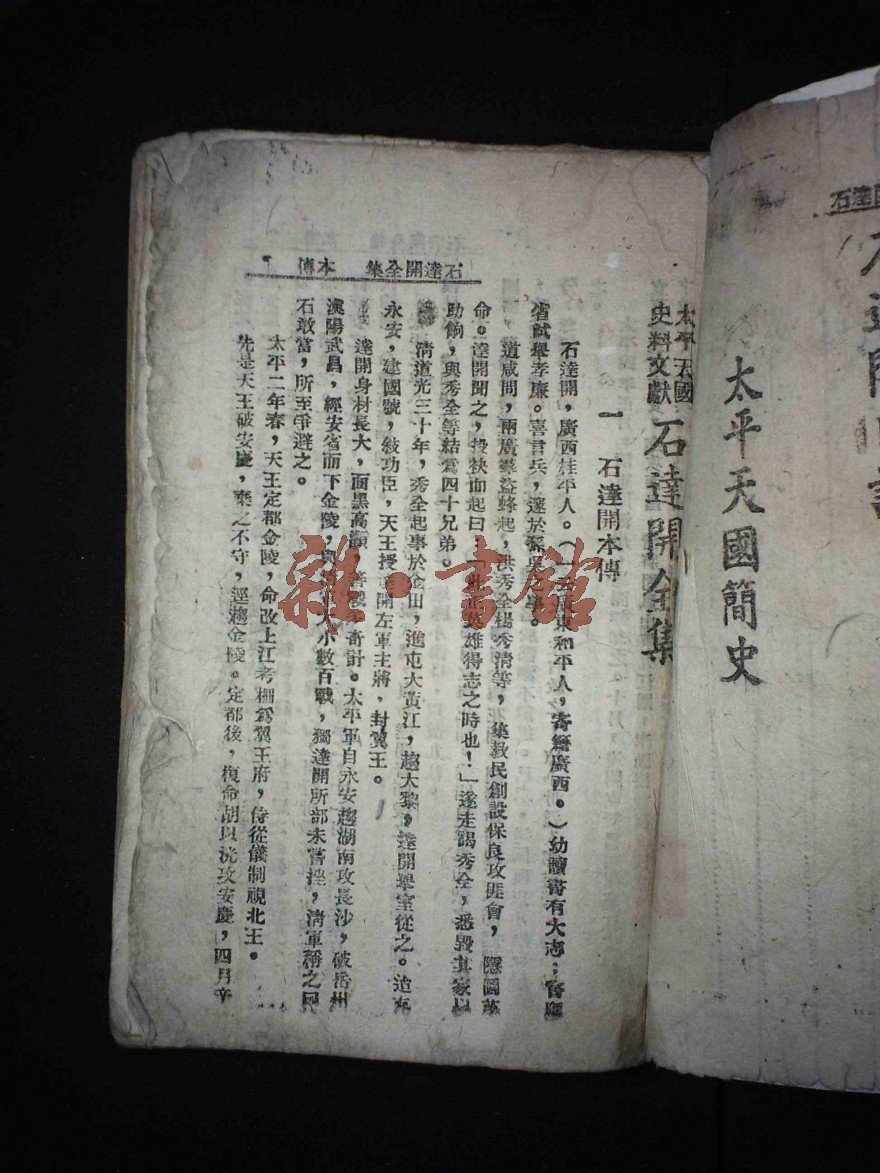 石達
太平天國簡史
太平天國
史料文獻
石達開全集
石達開全集 本傳
一 石達開本傳
石達開,廣西桂平人。(一
東和平人,寄籍廣西。)幼讀書有大志;嘗應
省試舉孝廉。喜言兵,邃於孫吳
道咸間,兩廣羣盜蜂起,洪秀全楊秀清等,集教民創設保良攻匪會,隱圖革
命。達開聞之,投袂而起曰:
雄得志之時也!」遂走謁秀全,悉毀其家以
助餉,與秀全等結爲四十兄弟。
清道光三十年,秀全起事於金田,進屯大黃江,趨大黎,達開舉室從之。迨克
永安,建國號,敍功臣,天王授達開左軍主將,封翼王。
達開身材長大,面黑高顴,善戰
奇計。太平軍自永安趨湖南攻長沙,破岳州
漢陽武昌,經安省而下金陵,與
大小數百戰,獨達開所部未嘗挫,清軍稱之曰
石敢當,所至爭避之。
太平二年春,天王定都金陵,命改上江考棚爲翼王府,侍從儀制視北王。
先是天王破安慶,棄之不守,逕趨金陵。定都後,復命胡以洸攻安慶,四月辛
雜·書館